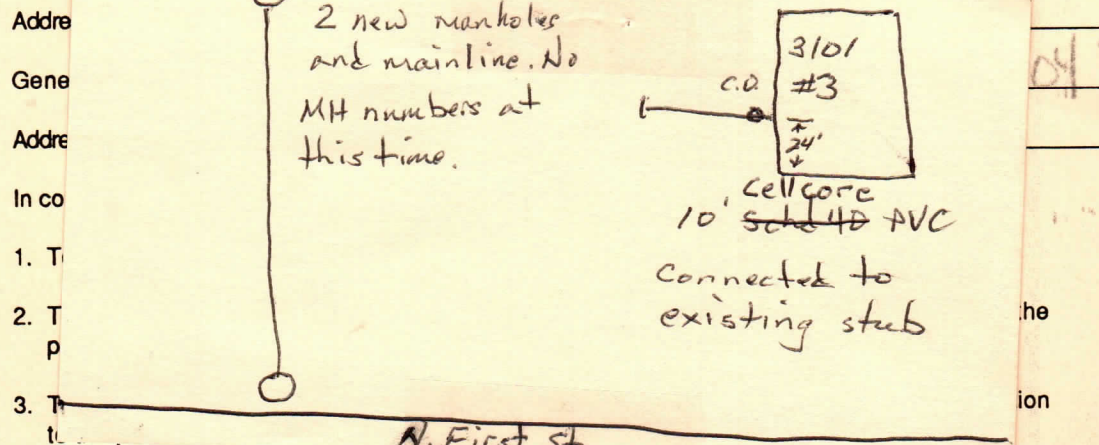 Addre
Gene
Addre
In co
1. T
2. T
p
3. T
t
2 new manholes
and mainline. No
MH numbers at
this time.
3101
#3
C.O.
24'
cellcore
10' Schd 40 PVC
Connected to
existing stub
N. First St
04
he
ion